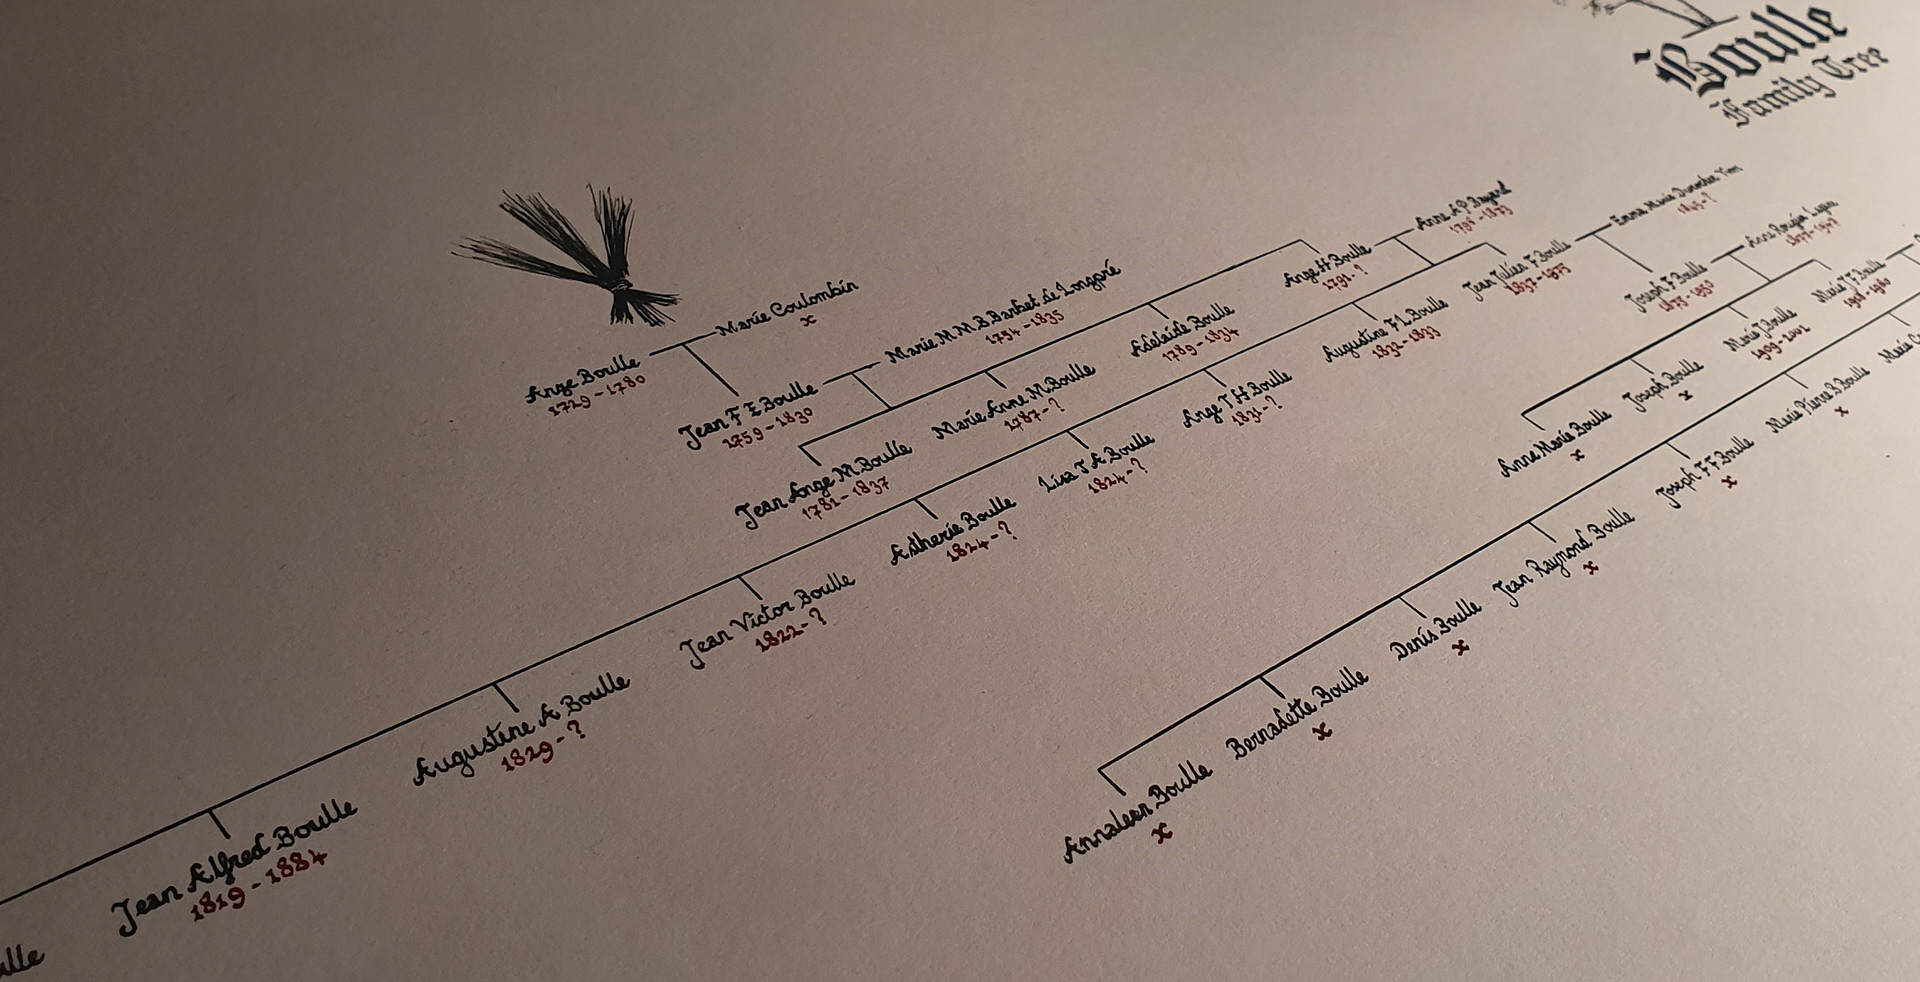 Boulle
Family Tree
Ange Boulle
1729 - 1780
Marie Coulombin
x
Jean F E Boulle
1759 - 1830
Marie M M B Barbet de Longpré
1754 - 1835
Jean Ange M Boulle
1781 - 1837
Marie Anne M Boulle
1787 - ?
Adelaide Boulle
1789 - 1834
Ange H Boulle
1791 - ?
Anne A P
Boulle
Jean Alfred Boulle
1819 - 1884
Augustine A Boulle
1829 - ?
Jean Victor Boulle
1822 - ?
Astherie Boulle
1824 - ?
Lisa T A Boulle
1824 - ?
Ange T H Boulle
1831 - ?
Augustine F L Boulle
1832 - 1833
Jean Julien F Boulle
1837 - 1875
Emma Marie
Joseph F Boulle
1875 - 1950
Anne Marie Boulle
x
Joseph Boulle
x
Marie J Boulle
1909 - 2002
Marie J F Boulle
Annaleen Boulle
x
Bernadette Boulle
x
Denis Boulle
x
Jean Raymond Boulle
x
Joseph F F Boulle
x
Marie Pierre B Boulle
x